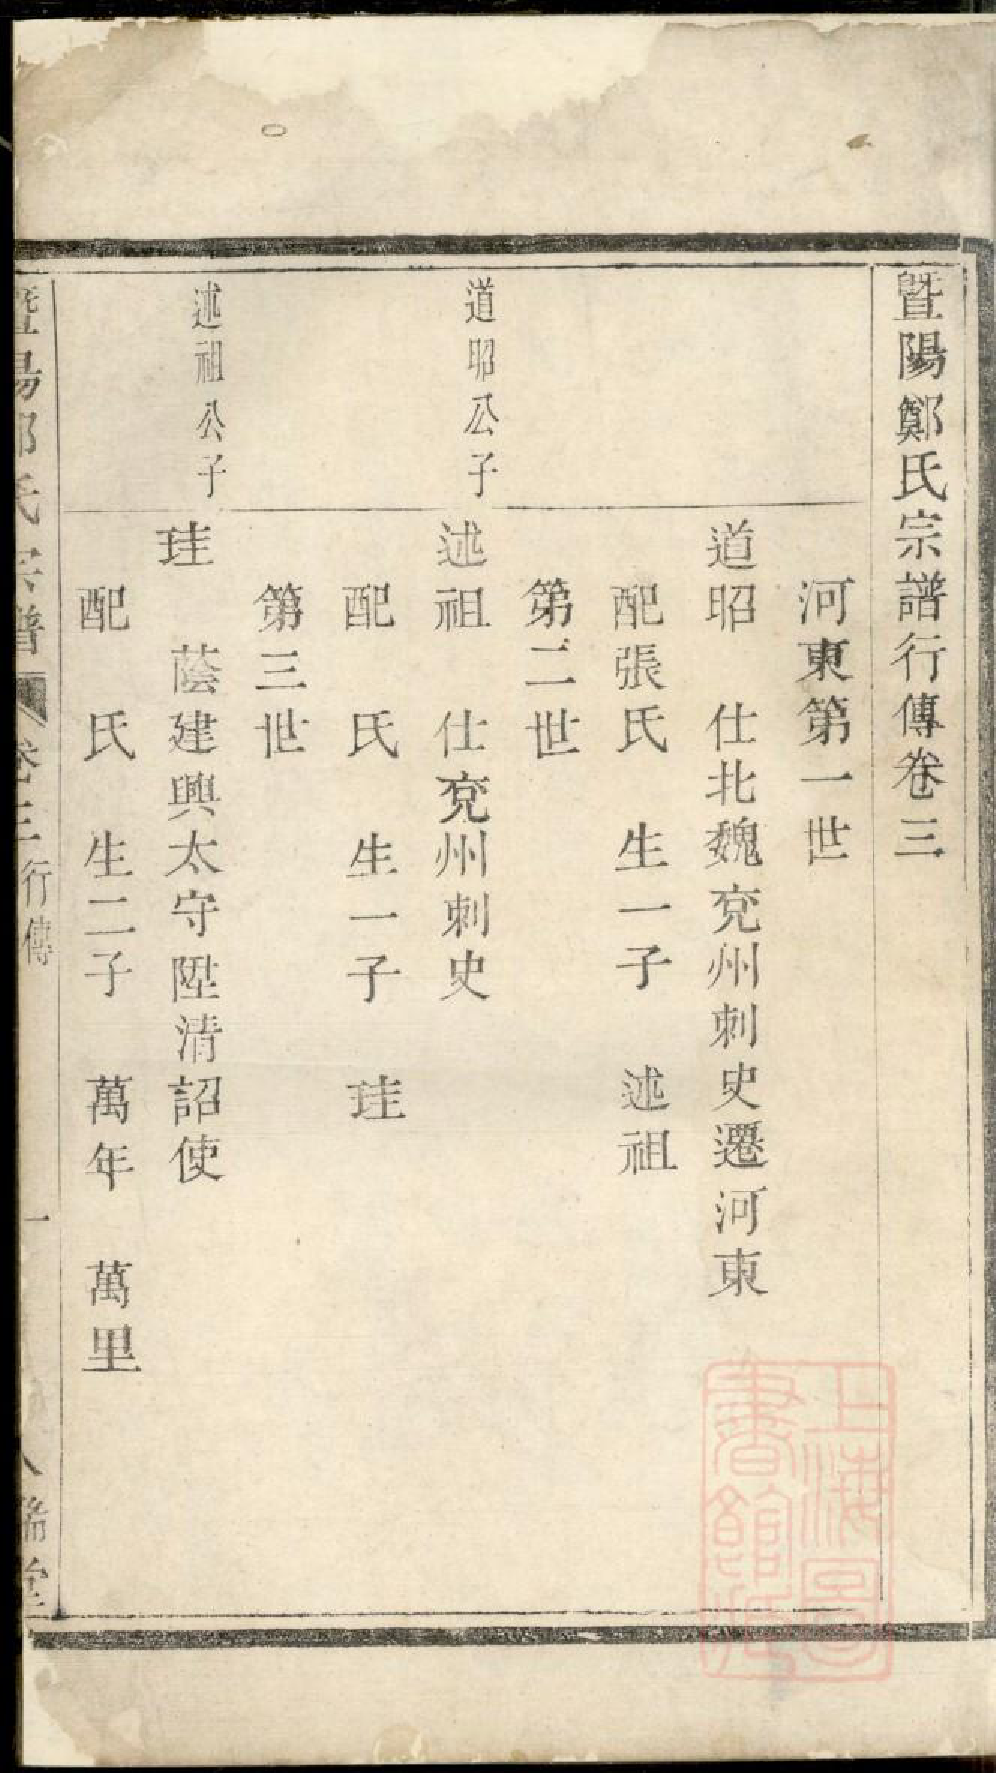 暨陽鄭氏宗譜行傳卷三
河東第一世
道昭 仕北魏兗州刺史遷河東
配張氏 生一子 述祖
第二世
道昭公子
述祖 仕兗州刺史
配 氏 生一子 珪
第三世
述祖公子
珪 蔭建興太守陞清詔使
配 氏 生二子 萬年 萬里
暨陽鄭氏宗譜 卷三 行傳 一 瑞堂
上海圖書館藏